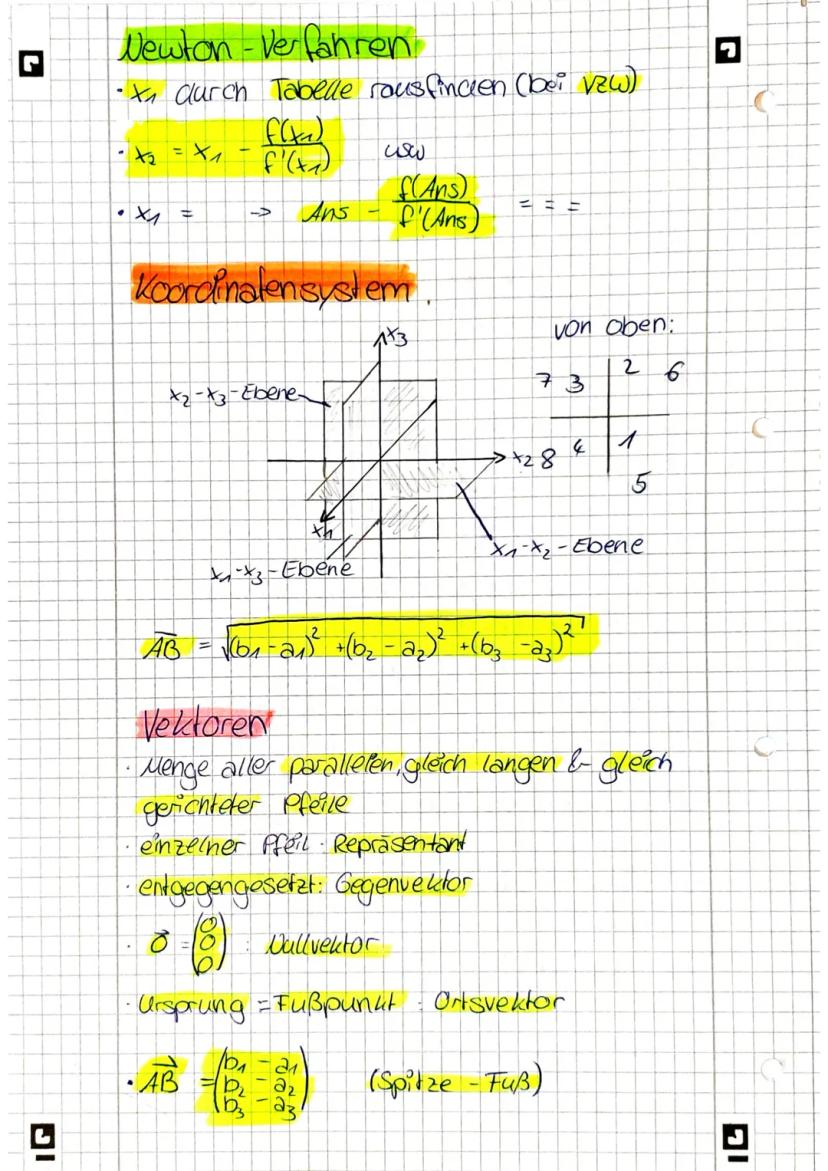 Newton-Verfahren
· x₁ durch Tabelle rausfinden (bei VZW)
· x₂ = x₁ - f(x₁)/f'(x₁) usw
· x₁ = -> Ans - f(Ans)/f'(Ans) = = =
Koordinatensystem
von oben:
x₃
x₂-x₃-Ebene
7 3 2 6
x₂
8 4 1
5
x₁
x₁-x₂-Ebene
x₁-x₃-Ebene
A͞B͞ = √(b₁-a₁)² +(b₂-a₂)² +(b₃-a₃)²
Vektoren
· Menge aller parallelen, gleich langen & gleich
gerichteter Pfeile
· einzelner Pfeil · Repräsentant
· entgegengesetzt: Gegenvektor
· o⃗ = (0 0 0) : Nullvektor
· Ursprung = Fußpunkt : Ortsvektor
· AB⃗ = (b₁ - a₁ b₂ - a₂ b₃ - a₃) (Spitze - Fuß)